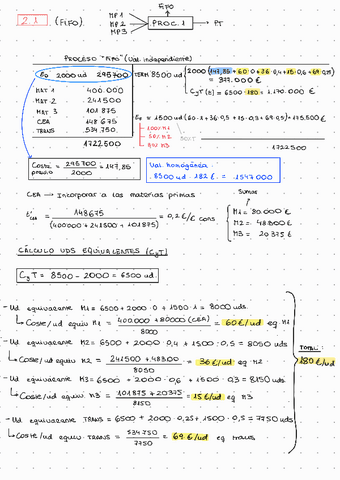 2.1 (FIFO)
FIFO
MP1
MP2
MP3
PROC. 1
PT
PROCESO "FIFO" (Val. independiente)
E₀ 2000 ud 295700
TERM 8500 ud
MAT 1 400.000
MAT 2 241500
MAT 3 101875
CEA 148675
TRANS 534.750
1722.500
2000
= 377.000 €
CgT (8) = 6500 · 180 = 1.170.000 €
1722500
Coste previo = 295700 / 2000 = 147,85
Val. homogénea:
8500 ud · 182 € = 1547.000
CEA → Incorporar a las materias primas
148675 / (400000 + 241500 + 101875) = 0,2 €/€ cons
Sumas
M1 = 80.000 €
M2 = 48300 €
M3 = 20375 €
CÁLCULO UDS EQUIVALENTES (CgT)
CgT = 8500 - 2000 = 6500 ud.
- Ud equivalente M1 = 6500 + 2000 · 0 + 1500 · 1 = 8000 uds
↳ Coste/ud equiv M1 = 400.000 + 80000 (CEA) / 8000 = 60 €/ud eq M1
- Ud equivalente M2 = 6500 + 2000 · 0,4 + 1500 · 0,5 = 8050 uds.
↳ Coste/ud equiv M2 = 241500 + 48300 / 8050 = 36 €/ud eq M2
- Ud equivalente M3 = 6500 + 2000 · 0,6 + 1500 · 0,3 = 8150 uds
↳ Coste/ud equiv M3 = 101875 + 20375 / 8150 = 15 €/ud eq M3
- Ud equivalente TRANS = 6500 + 2000 · 0,25 + 1500 · 0,5 = 7750 uds
↳ Coste/ud equiv. TRANS = 534.750 / 7750 = 69 €/ud eq trans
TOTAL:
180 €/ud